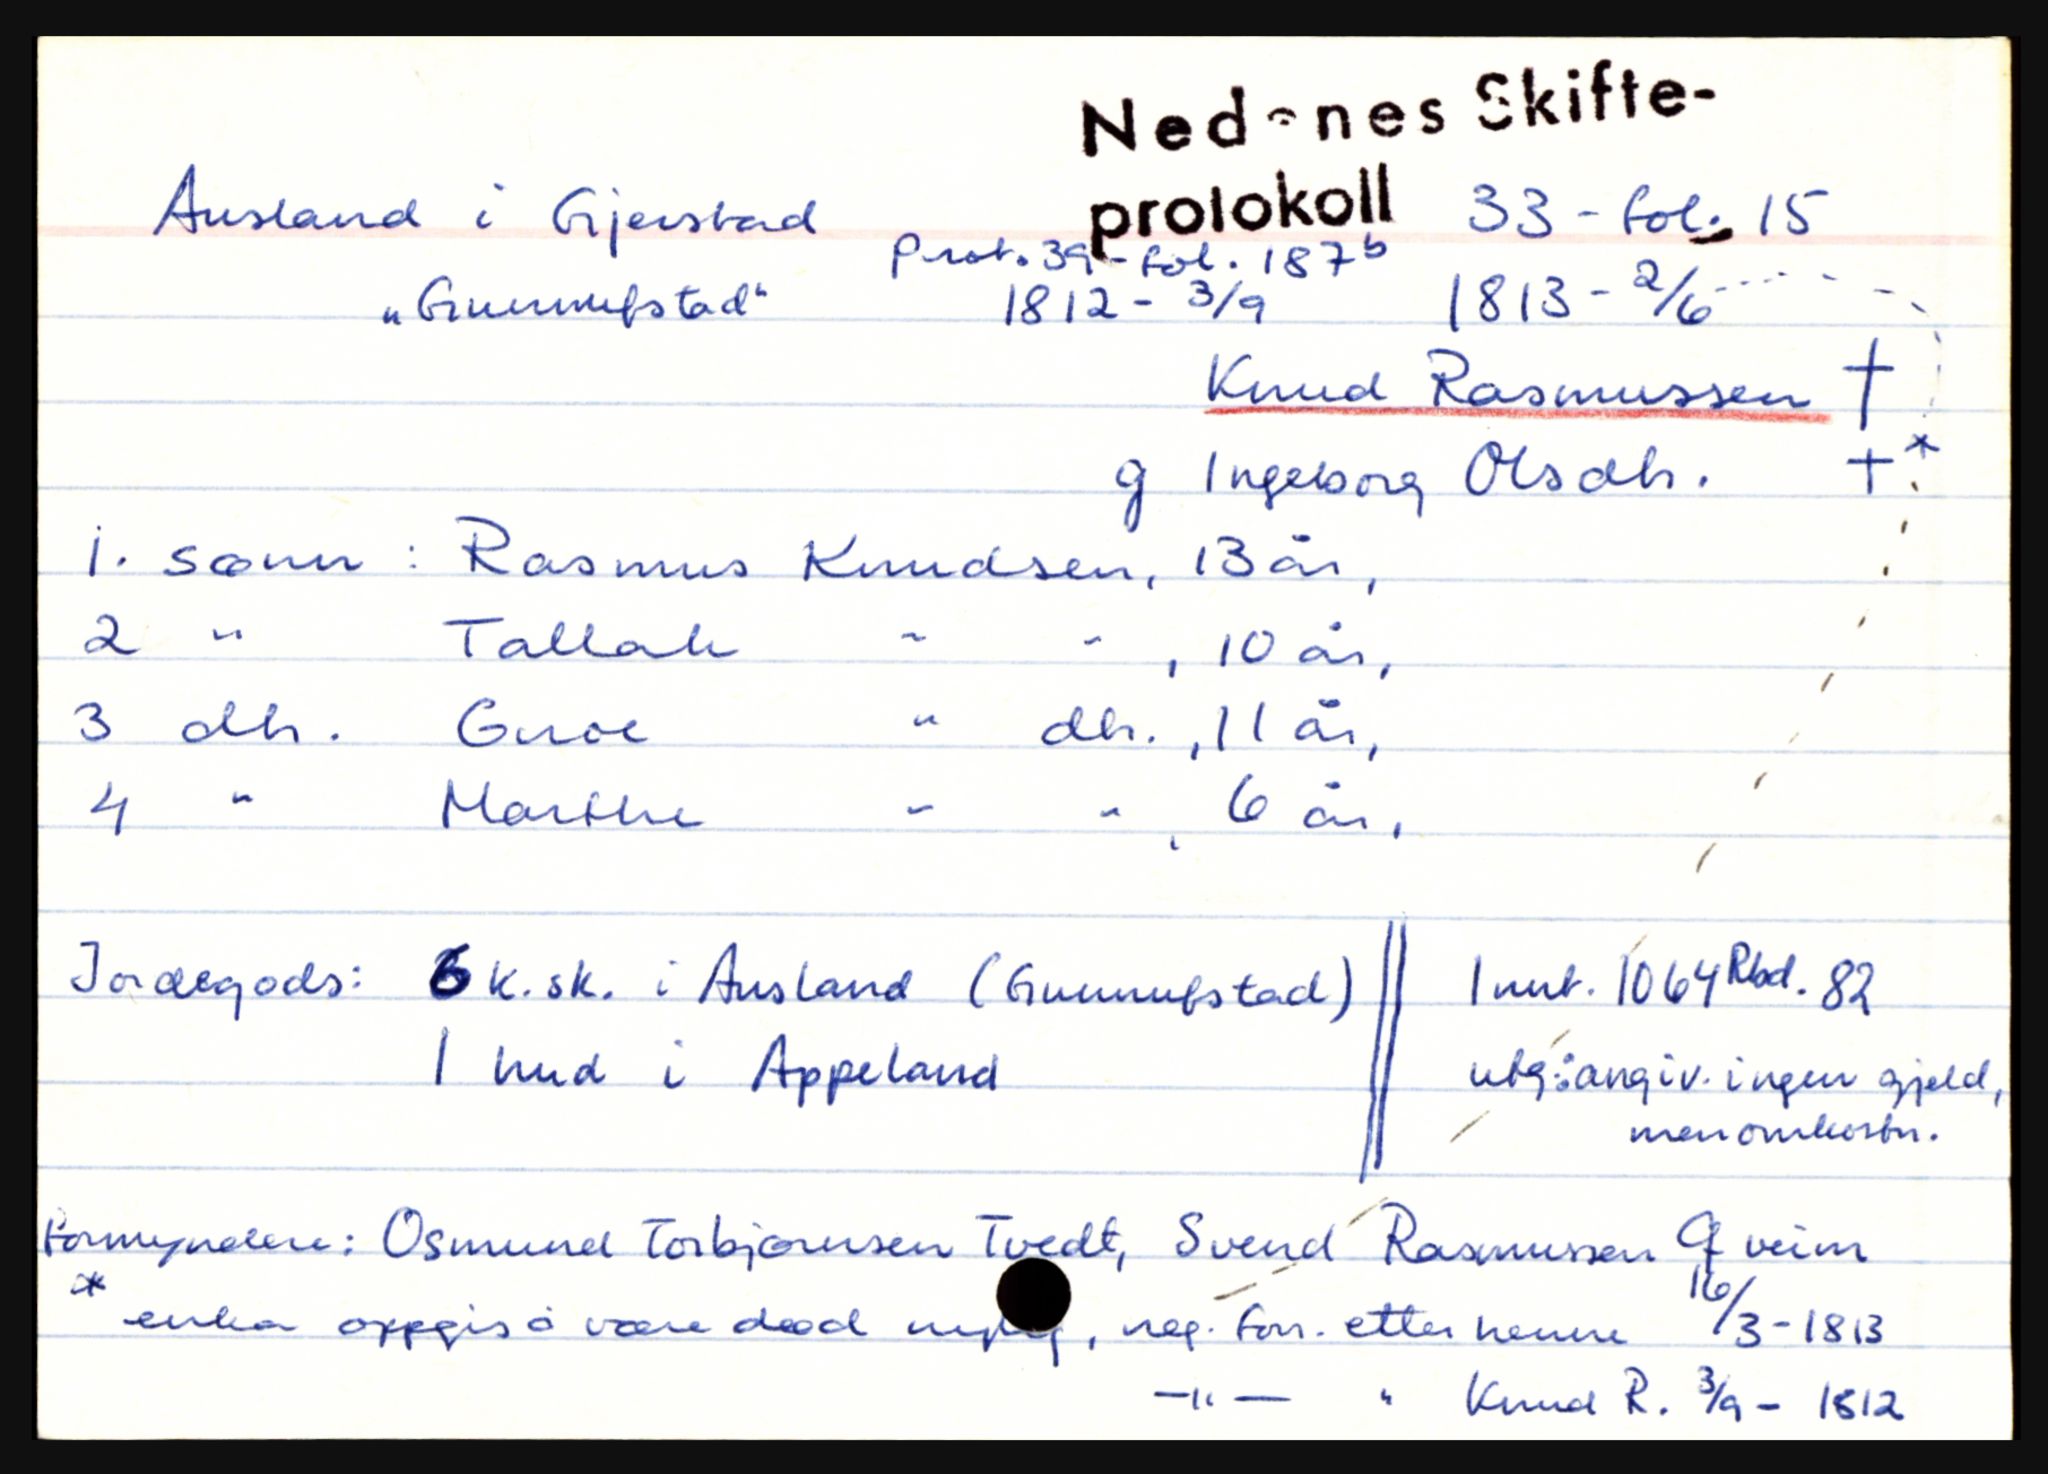 Nedenes Skifte-
protokoll 33 - fol. 15
Ausland i Gjerstad
Prot. 39 - fol. 187b
„Gunnufstad" 1812 - 3/9 1813 - 2/6
Knud Rasmussen †
g Ingeborg Olsdtr. + *
1. sønn : Rasmus Knudsen, 13 år,
2 " Tallak " " , 10 år,
3 dtr. Guroe " dtr. , 11 år,
4 " Marthe " " , 6 år.
Jordegods: 6 k.sk. i Ausland (Gunnufstad) Innt. 1064 Rbd. 82
1 hud i Appeland utg: angiv. ingen gjeld,
men omkostn.
Formyndere: Osmund Torbjørnsen Tvedt, Svend Rasmussen Qveim
* enka oppgis å være død nylig, reg. forr. etter henne 16/3 - 1813
—"— " Knud R. 3/9 - 1812